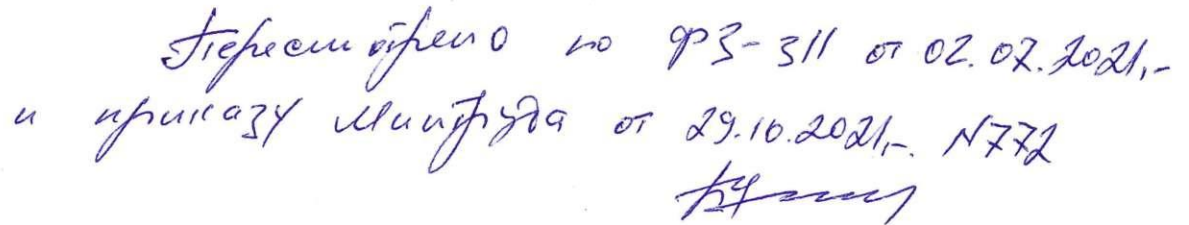 Пересмотрено по ФЗ-311 от 02.07.2021г.
и приказу Минтруда от 29.10.2021г. N772